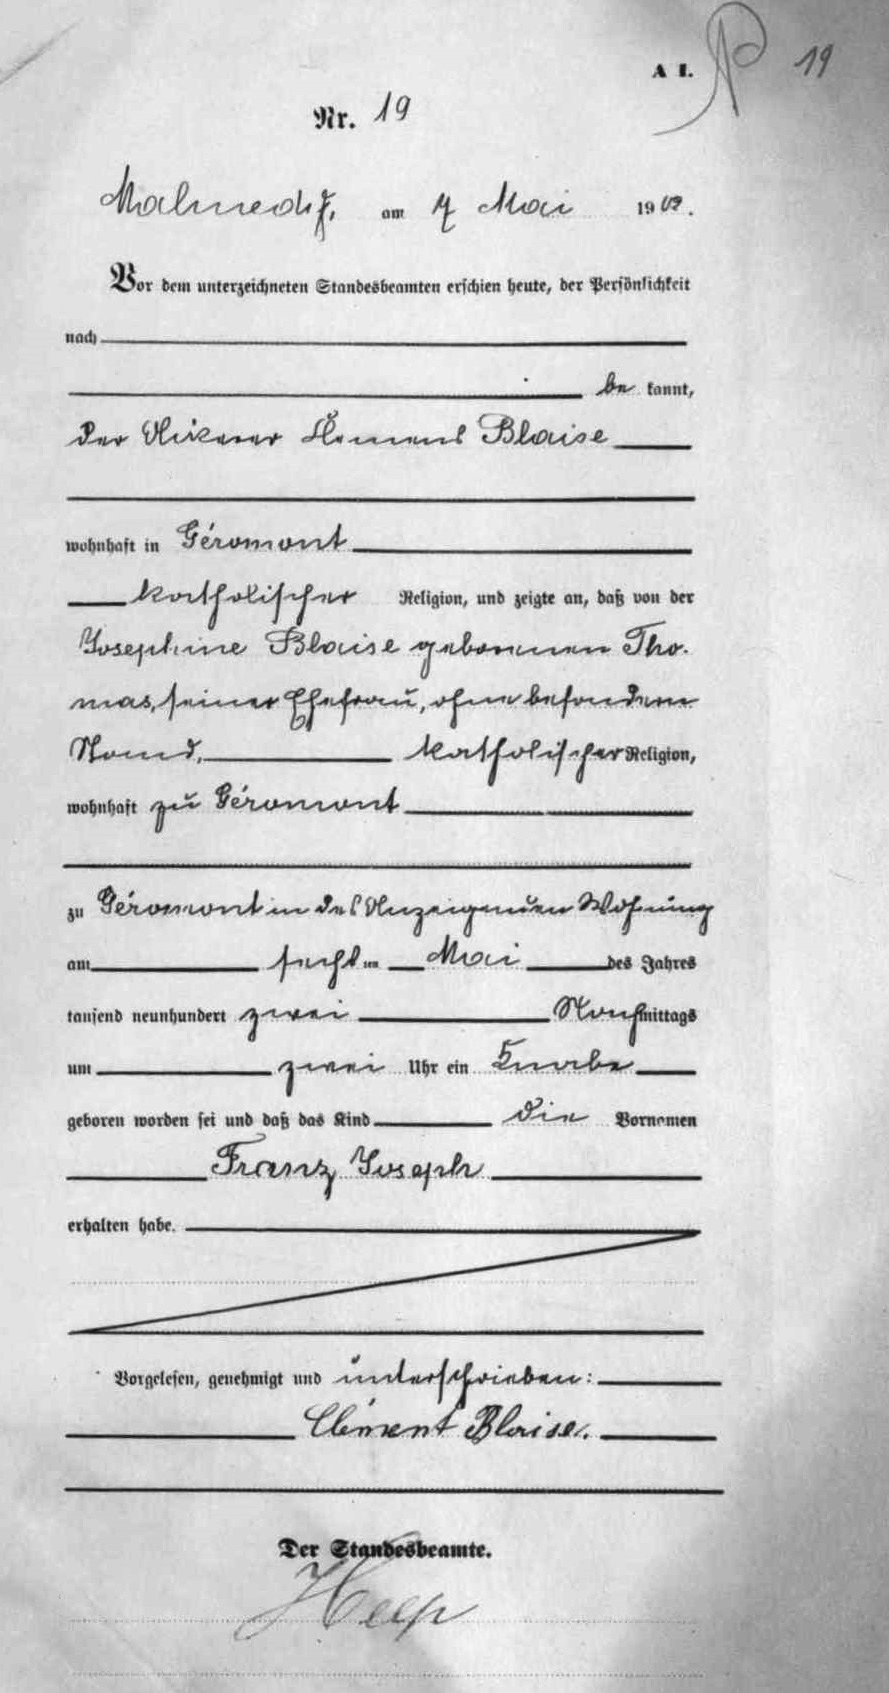 A I. 19
Nr. 19
Malmedy, am 7 Mai 1902.
Vor dem unterzeichneten Standesbeamten erschien heute, der Persönlichkeit
nach
be kannt,
der Ackerer Klemens Blaise
wohnhaft in Géromont
katholischer Religion, und zeigte an, daß von der
Josephine Blaise geborenen Tho-
mas, seiner Ehefrau, ohne besondern
Stand, katholischer Religion,
wohnhaft zu Géromont
zu Géromont in des Anzeigenden Wohnung
am sechsten Mai des Jahres
tausend neunhundert zwei Nachmittags
um zwei Uhr ein Knabe
geboren worden sei und daß das Kind die Vornamen
Franz Joseph
erhalten habe.
Vorgelesen, genehmigt und unterschrieben:
Clément Blaise.
Der Standesbeamte.